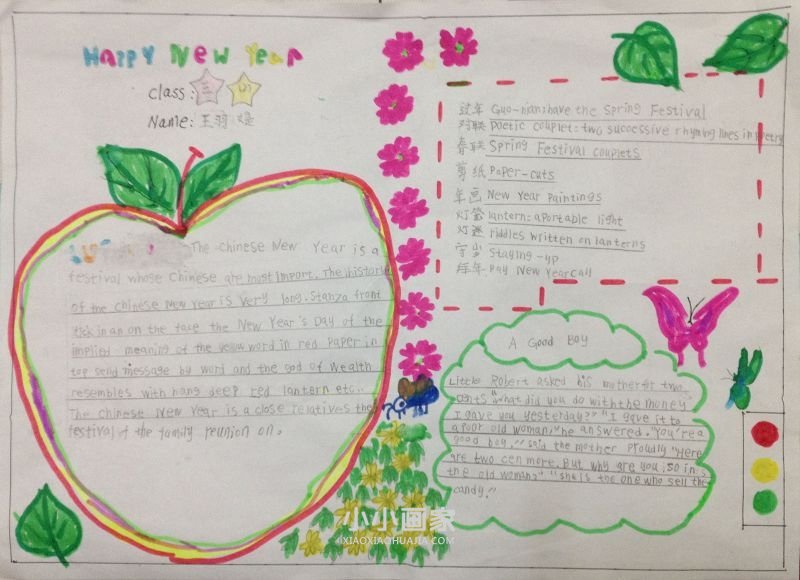 Happy New Year
class: 三 四
Name: 王羽
The Chinese New Year is a
festival whose Chinese are most import. The history
of the chinese New Year is very long. Stanza front
stick in an on the face the New Year's Day of the
implied meaning of the yellow word in red paper in
top send message by word and the god of wealth
resembles with hang deep red lantern etc..
The chinese New Year is a close relatives the
festival of the family reunion on.
过年 Guo-nian: have the Spring Festival
对联 Poetic couplet: two successive rhyming lines in poetry
春联 Spring Festival couplets
剪纸 Paper-cuts
年画 New Year Paintings
灯笼 lantern: a portable light
灯谜 riddles written on lanterns
守岁 Staying-up
拜年 Pay New Year call
A Good Boy
Little Robert asked his mother for two
cents "what did you do with the money
I gave you yesterday?" "I gave it to
a poor old woman," he answered. "You're a
good boy," said the mother proudly "Here
are two cen more. But why are you so in s
the old woman?" "she is the one who sell the
candy."
小小画家
XIAOXIAOHUAJIA.COM